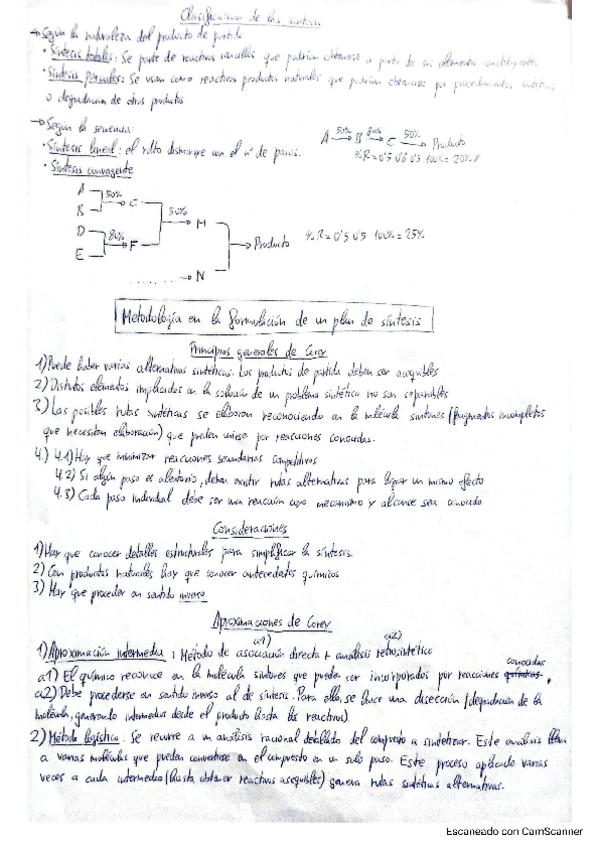 Clasificacion de las sintesis
→ Según la naturaleza del producto de partida
· Síntesis totales: Se parte de reactivos sencillos que podrían obtenerse a partir de sus elementos constituyentes
· Síntesis parciales: Se usan como reactivos productos naturales que podrían obtenerse por procedimientos sintéticos
o degradacion de otros productos
→ Según la secuencia:
· Síntesis lineal: el rdto disminuye con el nº de pasos.
A 50% B 80% C 50% Producto
%R = 0'5 0'8 0'5 100% = 20%
· Síntesis convergente
A
B 50% C
D
E 80% F
50% M
N
Producto %R = 0'5 0'5 100% = 25%
Metodología en la formulación de un plan de síntesis
Principios generales de Corey
1) Puede haber varias alternativas sintéticas. Los productos de partida deben ser asequibles
2) Distintos elementos implicados en la solución de un problema sintético no son separables
3) Las posibles rutas sintéticas se elaboran reconociendo en la molécula sintones (fragmentos incompletos
que necesitan elaboración) que puedan unirse por reacciones conocidas.
4.) 4.1) Hay que minimizar reacciones secundarias competitivas
4.2) Si algún paso es aleatorio, deben existir rutas alternativas para llegar un mismo efecto
4.3) Cada paso individual debe ser una reacción cuyo mecanismo y alcance sea conocido
Consideraciones
1) Hay que conocer detalles estructurales para simplificar la síntesis.
2) Con productos naturales hay que conocer antecedentes químicos
3) Hay que proceder en sentido inverso
Aproximaciones de Corey
a1) a2)
1) Aproximación intermedia: Método de asociación directa + análisis retrosintético
a1) El químico reconoce en la molécula sintones que puedan ser incorporados por reacciones conocidas.
a2) Debe procederse en sentido inverso al de síntesis. Para ello, se hace una disección/degradación de la
molécula, generando intermedios desde el producto hasta los reactivos).
2) Método logístico: Se recurre a un análisis racional detallado del compuesto a sintetizar. Este análisis lleva
a varias moléculas que puedan convertirse en el compuesto en un solo paso. Este proceso aplicado varias
veces a cada intermedio (hasta obtener reactivos asequibles) genera rutas sintéticas alternativas.
Escaneado con CamScanner